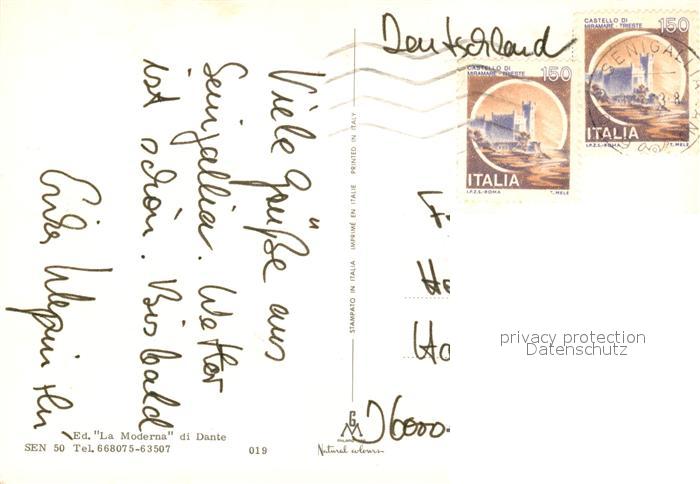 Deutschland
CASTELLO DI
MIRAMARE - TRIESTE
150
ITALIA
I.P.Z.S. - ROMA
T. MELE
CASTELLO DI
MIRAMARE - TRIESTE
150
ITALIA
I.P.Z.S. - ROMA
T. MELE
SENIGALLIA
Viele Grüße aus
Senigallia. Wetter
ist schön. Bis bald
STAMPATO IN ITALIA IMPRIMÉ EN ITALIE PRINTED IN ITALY
He
Ho
D6000
privacy protection
Datenschutz
Ed. "La Moderna" di Dante
SEN 50 Tel. 668075-63507
019
GM
Natural colours